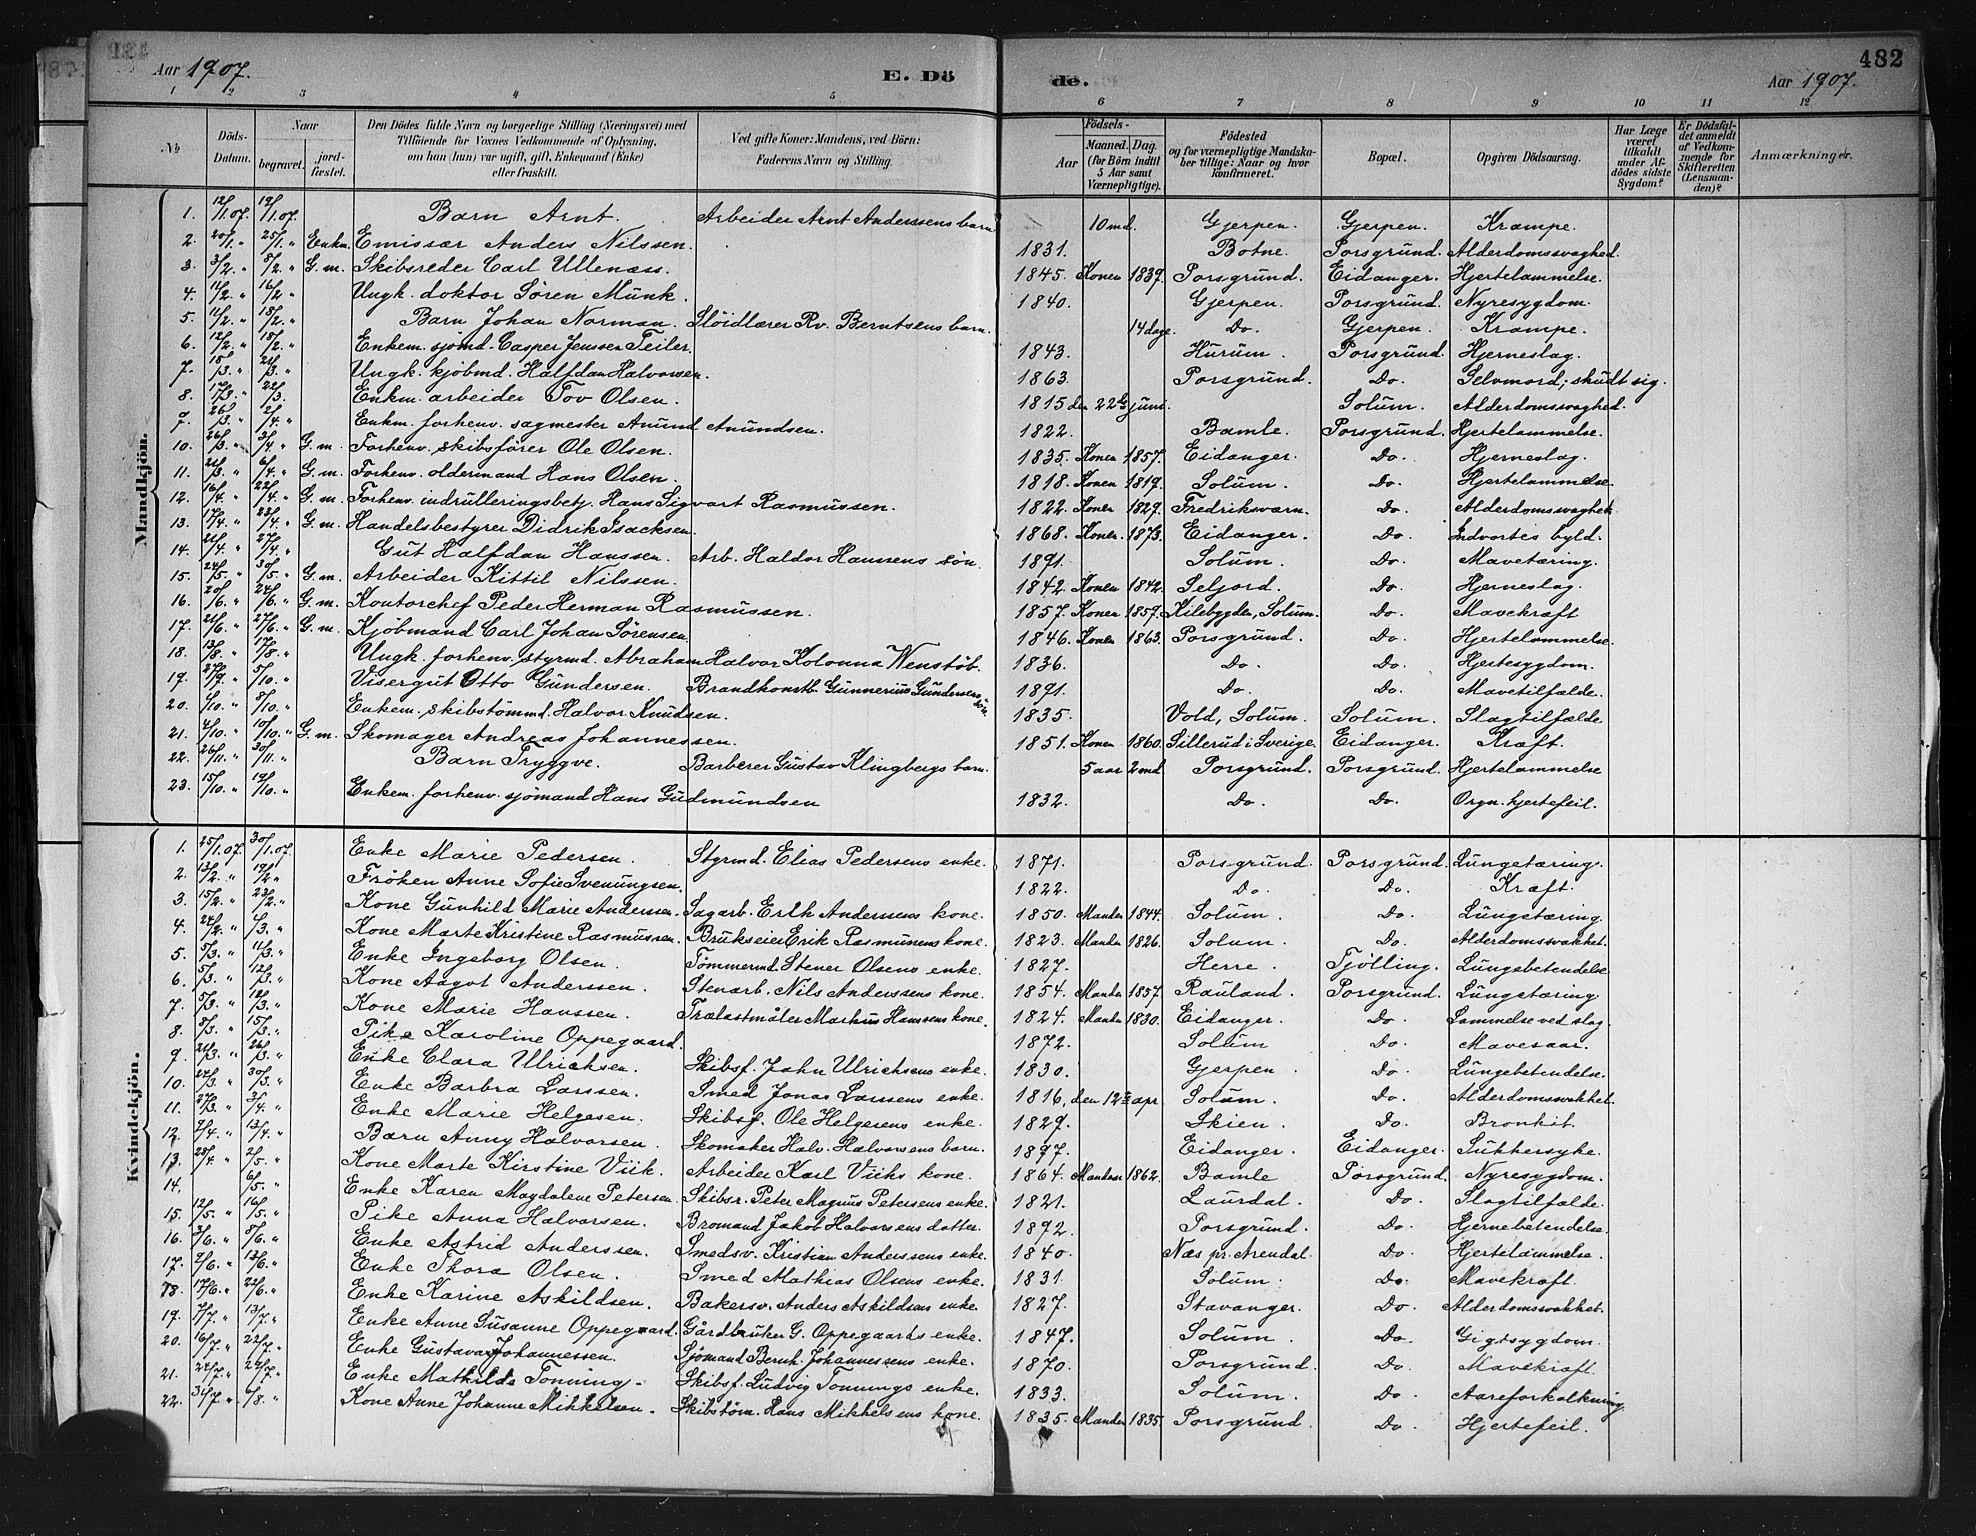 482
Aar 1907.
E. Döde.
Aar 1907.
1 2 3 4 5 6 7 8 9 10 11 12
No
Döds-Datum.
Naar
begravet.
jordfæstet.
Den Dödes fulde Navn og borgerlige Stilling (Næringsvei) med Tilföiende for Voxnes Vedkommende af Oplysning, om han (hun) var ugift, gift, Enkemand (Enke) eller fraskilt.
Ved gifte Koner: Mandens, ved Börn: Faderens Navn og Stilling.
Födsels-
Aar
Maaned. Dag.
(for Börn indtil 5 Aar samt Værnepligtige).
Födested og for værnepligtige Mandskaber tillige: Naar og hvor konfirmeret.
Bopæl.
Opgiven Dödsaarsag.
Har Læge været tilkaldt under Afdödes sidste Sygdom?
Er Dödsfaldet anmeldt af Vedkommende for Skifteretten (Lensmanden)?
Anmærkninger.
Mandkjön.
1. 12/1.07. 19/1.07. Barn Arnt. Arbeider Arnt Anderssens barn 10 md. Gjerpen. Gjerpen. Krampe.
2. 20/1. " 25/1. " Enkm. Emissær Anders Nilssen. 1831. Botne. Porsgrund. Alderdomssvaghed.
3. 3/2. " 8/2. " G. m. Skibsreder Carl Ullenæss. 1845. Konen 1839. Porsgrund. Eidanger. Hjertelammelse.
4. 11/2. " 16/2 " Ungk. doktor Sören Munk. 1840. Gjerpen. Porsgrund. Nyresygdom.
5. 11/2. " 15/2. " Barn Johan Norman. Slöidlærer Rv. Berntsens barn. 14 dage. Do. Gjerpen. Krampe.
6. 12/2. " 18/2. " Enkem. sjömd. Casper Jenssen Feiler. 1843. Hurum. Porsgrund. Hjerneslag.
7. 15/3. " 21/3. " Ungk. kjöbmd. Halfdan Halvorsen. 1863. Porsgrund. Do. Selvmord; skudt sig.
8. 17/3. " 22/3. Enkm. arbeider Tov Olsen. 1815 den 22de juni. Solum. Alderdomssvaghed.
9. 26/3. " 2/4. " Enkm. forhenv. sagmester Anund Anundsen. 1822. Bamle. Porsgrund. Hjertelammelse.
10. 26/3. " 3/4. " G. m. Forhenv. skibsförer Ole Olsen. 1835. Konen 1857. Eidanger. Do. Hjerneslag.
11. 21/3. " 6/4. " G. m. Forhenv. oldermand Hans Olsen. 1818. Konen 1819. Solum. Do. Hjertelammelse.
12. 16/4. " 22/4. " G. m. Forhenv. indrulleringsbetj. Hans Sigvart Rasmussen. 1822. Konen 1829. Fredriksværn. Do. Alderdomssvaghet.
13. 17/4. " 23/4. " G. m. Handelsbestyrer Didrik Isacksen. 1868. Konen 1873. Eidanger. Do. Indvortes byld.
14. 21/4. " 27/4. " Gut Halfdan Hanssen. Arb. Haldor Hanssens sön. 1891. Solum. Do. Mavetæring.
15. 24/5. " 30/5. " G. m. Arbeider Kittil Nilssen. 1842. Konen 1842. Seljord. Do. Hjerneslag.
16. 20/6. " 24/6. " G. m. Kontorchef Peder Herman Rasmussen. 1857. Konen 1859. Kilebygden, Solum. Do. Mavekræft
17. 21/6. " 27/6. " G. m. Kjöbmand Carl Johan Sörensen. 1846. Konen 1863. Porsgrund. Do. Hjertelammelse.
18. 13/8. " 17/8. " Ungk. forhenv. styrmd. Abraham Halvor Kolonna Wenstöb. 1836. Do. Do. Hjertesygdom.
19. 27/9. " 5/10. " Visergut Otto Gundersen. Brandkonstb. Gunnerius Gundersens sön. 1891. Do. Do. Mavetilfælde.
20. 4/10. " 8/10. " Enkem. skibstömmd. Halvor Knudsen. 1835. Vold, Solum. Solum. Slagtilfælde.
21. 4/10. " 10/10. " G. m. Skomager Andreas Johannessen. 1851. Konen 1860. Sillerud i Sverige. Eidanger. Kræft.
22. 26/11. " 30/11. " Barn Tryggve. Barberer Gustav Klingbergs barn. 5 aar 2 md. Porsgrund. Porsgrund. Hjertelammelse
23. 15/10. " 19/10. " Enkem. forhenv. sjömand Hans Gudmundsen 1832. Do. Do. Orgn. hjertefeil.
Kvindekjön.
1. 25/1.07. 30/1.07. Enke Marie Pedersen. Styrmd. Elias Pedersens enke. 1871. Porsgrund. Porsgrund. Lungetæring.
2. 13/2. " 19/2 " Fröken Anne Sofie Svenungsen. 1822. Do. Do. Kræft.
3. 15/2. " 23/2. " Kone Gunhild Marie Anderssen. Sagarb. Erik Anderssens kone. 1850. Manden 1844. Solum. Do. Lungetæring.
4. 24/2. " 4/3. " Kone Marte Kristine Rasmussen. Brukseier Erik Rasmussens kone. 1823. Manden 1826. Solum. Do. Alderdomssvakhet.
5. 5/3. " 11/3. " Enke Ingeborg Olsen. Tömmermd. Stener Olsens enke. 1827. Herre. Tjölling. Lungebetendelse
6. 5/3. " 12/3. " Kone Aagot Anderssen. Stenarb. Nils Anderssens kone. 1854. Manden 1857. Rauland. Porsgrund. Lungetæring
7. 5/3. " 12/3. " Kone Marie Hanssen. Trælastmåler Markus Hanssens kone. 1824. Manden 1830. Eidanger. Do. Lammelse ved slag.
8. 8/3. " 15/3. " Pike Karoline Oppegaard. 1872. Solum Do. Mavesaar.
9. 21/3. " 26/3. " Enke Clara Ulrichsen. Skibsf. Jahn Ulrichsens enke. 1830. Gjerpen. Do. Lungebetendelse.
10. 24/3. " 30/3. " Enke Barbra Larssen. Smed Jonas Larssens enke. 1816, den 12te apr. Solum. Do. Alderdomssvakhet.
11. 27/3. " 3/4. " Enke Marie Helgesen. Skibsf. Ole Helgesens enke. 1829. Skien. Do. Bronkit.
12. 7/4. " 13/4. " Barn Anny Halvorsen. Skomaker Halv. Halvorsens barn. 1897. Eidanger. Eidanger. Sukkersyke.
13. 28/4. " 2/5. " Kone Marte Kirstine Viik. Arbeider Karl Viiks kone. 1864. Manden 1862. Bamle Porsgrund. Nyresygdom.
14. 6/5. " Enke Karen Magdalene Petersen. Skibsr. Peter Magnus Petersens enke. 1821. Laurdal. Do. Slagtilfælde.
15. 12/5. " 16/5. " Pike Anna Halvorsen. Bromand Jakob Halvorsens datter. 1892. Porsgrund. Do. Hjernebetendelse.
16. 3/6. " 8/6. " Enke Astrid Anderssen. Smedsv. Kristian Anderssens enke. 1840. Næs pr. Arendal. Do. Hjertelammelse.
17. 7/6. " 13/6. " Enke Thora Olsen. Smed Mathias Olsens enke. 1831. Solum. Do. Mavekræft.
18. 17/6. " 22/6. " Enke Karine Askildsen. Bakersv. Anders Askildsens enke. 1827. Stavanger. Do. Alderdomssvakhet.
19. 7/7. " 13/7. " Enke Anne Susanne Oppegaard. Gårdbruker G. Oppegaards enke. 1847. Solum. Do. Gigtsygdom.
20. 16/7. " 22/7. " Enke Gustava Johannessen. Sjömand Bernh. Johannessens enke. 1870. Porsgrund. Do. Mavekræft.
21. 24/7. " 29/7. " Enke Mathilde Tonning. Skibsf. Ludvig Tonnings enke. 1833. Solum. Do. Aareforkalkning.
22. 31/7. " 7/8. " Kone Anne Johanne Mikkelsen. Skibstöm. Hans Mikkelsens kone. 1835. Manden 1835. Porsgrund. Do. Hjertefeil.